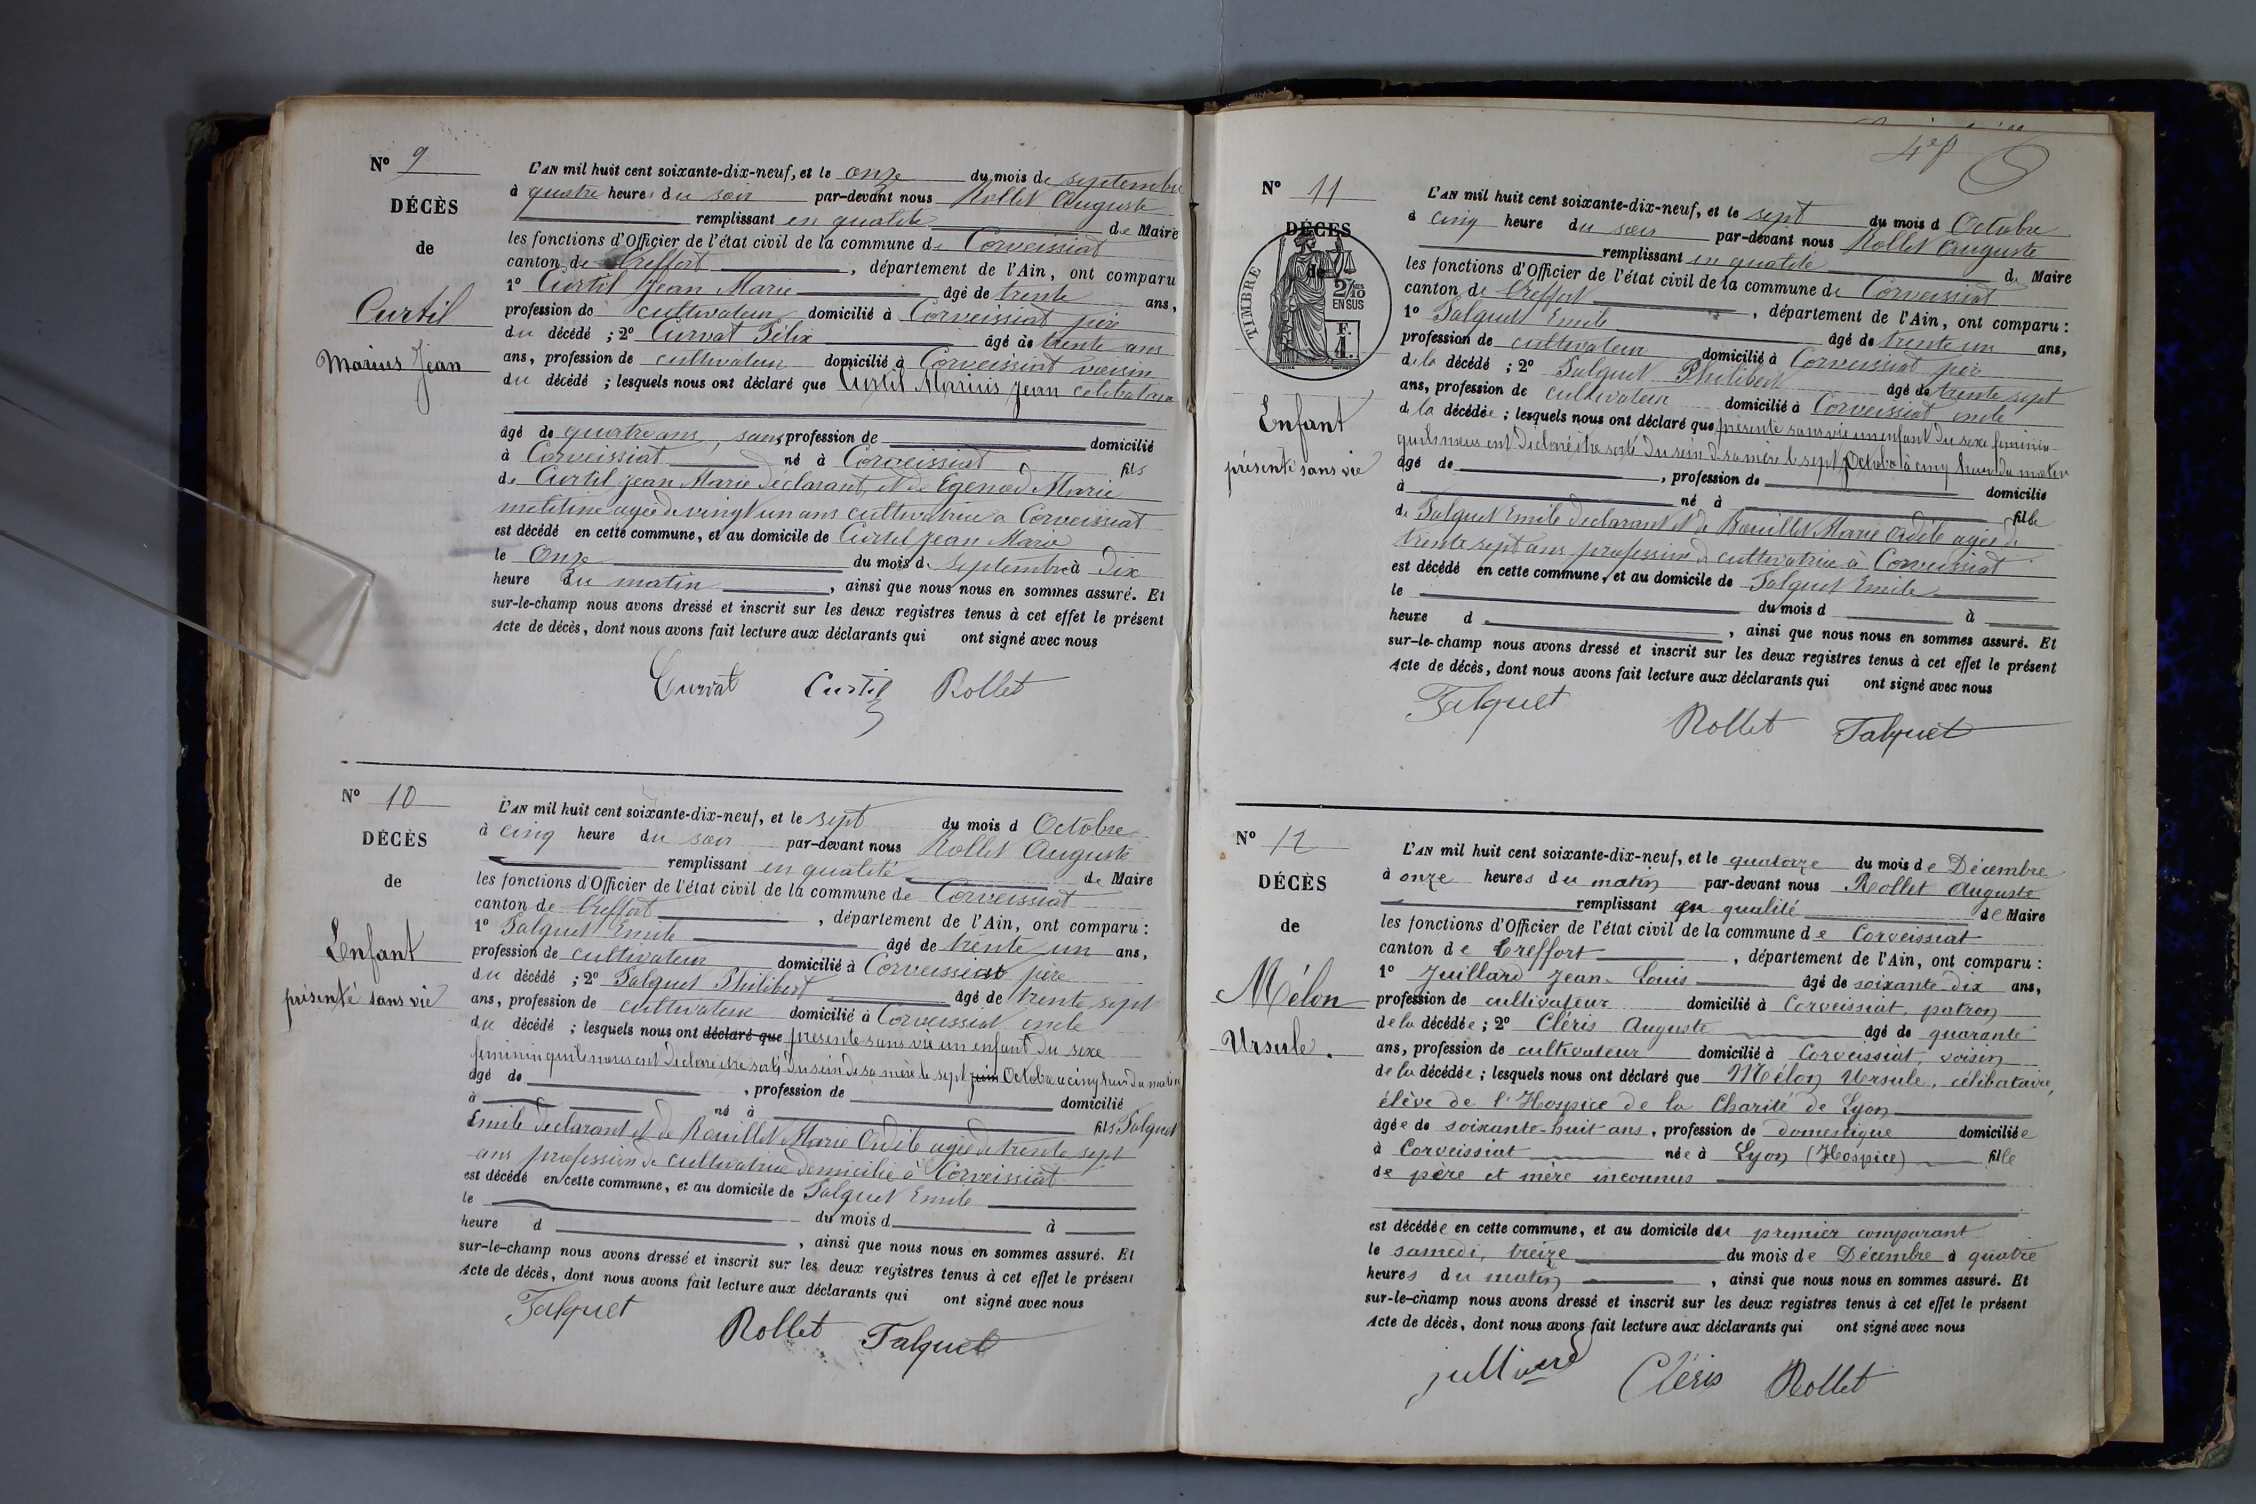 N° 9
DÉCÈS
de
Curtil
Marius Jean
L'AN mil huit cent soixante-dix-neuf, et le onze du mois de septembre
à quatre heures du soir par-devant nous Rollet Auguste
remplissant en qualité de Maire
les fonctions d'Officier de l'état civil de la commune de Corveissiat
canton de Treffort, département de l'Ain, ont comparu
1° Curtil Jean Marie âgé de trente ans,
profession de cultivateur domicilié à Corveissiat père
du décédé ; 2° Curvat Félix âgé de trente ans
ans, profession de cultivateur domicilié à Corveissiat voisin
du décédé ; lesquels nous ont déclaré que Curtil Marius Jean celibataire
âgé de quatre ans, sans profession de domicilié
à Corveissiat né à Corveissiat fils
de Curtil Jean Marie déclarant, et de Egenod Marie
agée de vingt un ans cultivatrice a Corveissiat
est décédé en cette commune, et au domicile de Curtil Jean Marie
le Onze du mois de septembre à Dix
heure du matin, ainsi que nous nous en sommes assuré. Et
sur-le-champ nous avons dressé et inscrit sur les deux registres tenus à cet effet le présent
Acte de décès, dont nous avons fait lecture aux déclarants qui ont signé avec nous
Curvat Curtil Rollet
N° 10
DÉCÈS
de
L'enfant
présenté sans vie
L'AN mil huit cent soixante-dix-neuf, et le sept du mois d Octobre
à cinq heure du soir par-devant nous Rollet Auguste
remplissant en qualité de Maire
les fonctions d'Officier de l'état civil de la commune de Corveissiat
canton de Treffort, département de l'Ain, ont comparu :
1° Falquet Emile âgé de trente un ans,
profession de cultivateur domicilié à Corveissiat père
du décédé ; 2° Falquet Philibert âgé de trente sept
ans, profession de cultivateur domicilié à Corveissiat oncle
du décédé ; lesquels nous ont déclaré que presente sans vie un enfant du sexe
feminin quils nous ont declaré etre sorti du sein de sa mère le sept juin Octobre a cinq heur du matin
âgé de, profession de domicilié
à né à fils Falquet
Emile declarant et de Rouillet Marie Odile agée de trente sept
ans profession de cultivatrice domicilie à Corveissiat
est décédé en cette commune, et au domicile de Falquet Emile
le du mois d à
heure d, ainsi que nous nous en sommes assuré. Et
sur-le-champ nous avons dressé et inscrit sur les deux registres tenus à cet effet le présent
Acte de décès, dont nous avons fait lecture aux déclarants qui ont signé avec nous
Falquet Rollet Falquet
N° 11
DÉCÈS
de
TIMBRE
2/10
EN SUS
F.
1.
Enfant
présenté sans vie
L'AN mil huit cent soixante-dix-neuf, et le sept du mois d Octobre
à cinq heure du soir par-devant nous Rollet Auguste
remplissant en qualité de Maire
les fonctions d'Officier de l'état civil de la commune de Corveissiat
canton de Treffort, département de l'Ain, ont comparu :
1° Falquet Emile âgé de trente un ans,
profession de cultivateur domicilié à Corveissiat père
de la décédé ; 2° Falquet Philibert âgé de trente sept
ans, profession de cultivateur domicilié à Corveissiat oncle
de la décédée ; lesquels nous ont déclaré que presente sans vie un enfant du sexe feminin
quils nous ont declaré etre sorti du sein de sa mère le sept Octobre à cinq heur du matin
âgé de, profession de domicilié
à né à fille
de Falquet Emile declarant et de Rouillet Marie Odile agée de
trente sept ans profession de cultivatrice à Corveissiat
est décédé en cette commune, et au domicile de Falquet Emile
le du mois d à
heure d, ainsi que nous nous en sommes assuré. Et
sur-le-champ nous avons dressé et inscrit sur les deux registres tenus à cet effet le présent
Acte de décès, dont nous avons fait lecture aux déclarants qui ont signé avec nous
Falquet Rollet Falquet
N° 12
DÉCÈS
de
Mélon
Ursule.
L'AN mil huit cent soixante-dix-neuf, et le quatorze du mois de Décembre
à onze heures du matin par-devant nous Rollet Auguste
remplissant en qualité de Maire
les fonctions d'Officier de l'état civil de la commune de Corveissiat
canton de Treffort, département de l'Ain, ont comparu :
1° Juillard Jean-Louis âgé de soixante-dix ans,
profession de cultivateur domicilié à Corveissiat, patron
de la décédée ; 2° Cléris Auguste âgé de quarante
ans, profession de cultivateur domicilié à Corveissiat, voisin
de la décédée ; lesquels nous ont déclaré que Mélon Ursule, célibataire,
élève de l'Hospice de la Charité de Lyon
âgée de soixante-huit ans, profession de domestique domiciliée
à Corveissiat née à Lyon (Hospice) fille
de père et mère inconnus
est décédée en cette commune, et au domicile du premier comparant
le samedi, treize du mois de Décembre à quatre
heures du matin, ainsi que nous nous en sommes assuré. Et
sur-le-champ nous avons dressé et inscrit sur les deux registres tenus à cet effet le présent
Acte de décès, dont nous avons fait lecture aux déclarants qui ont signé avec nous
Cléris Rollet